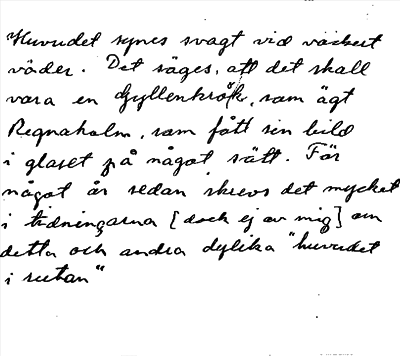 Huvudet synes svagt vid vackert
väder. Det säges, att det skall
vara en Gyllenkrok, som ägt
Regnaholm, som fått sin bild
i glaset på något sätt. För
något år sedan skrevs det mycket
i tidningarna [dock ej av mig] om
detta och andra dylika "huvudet
i rutan"